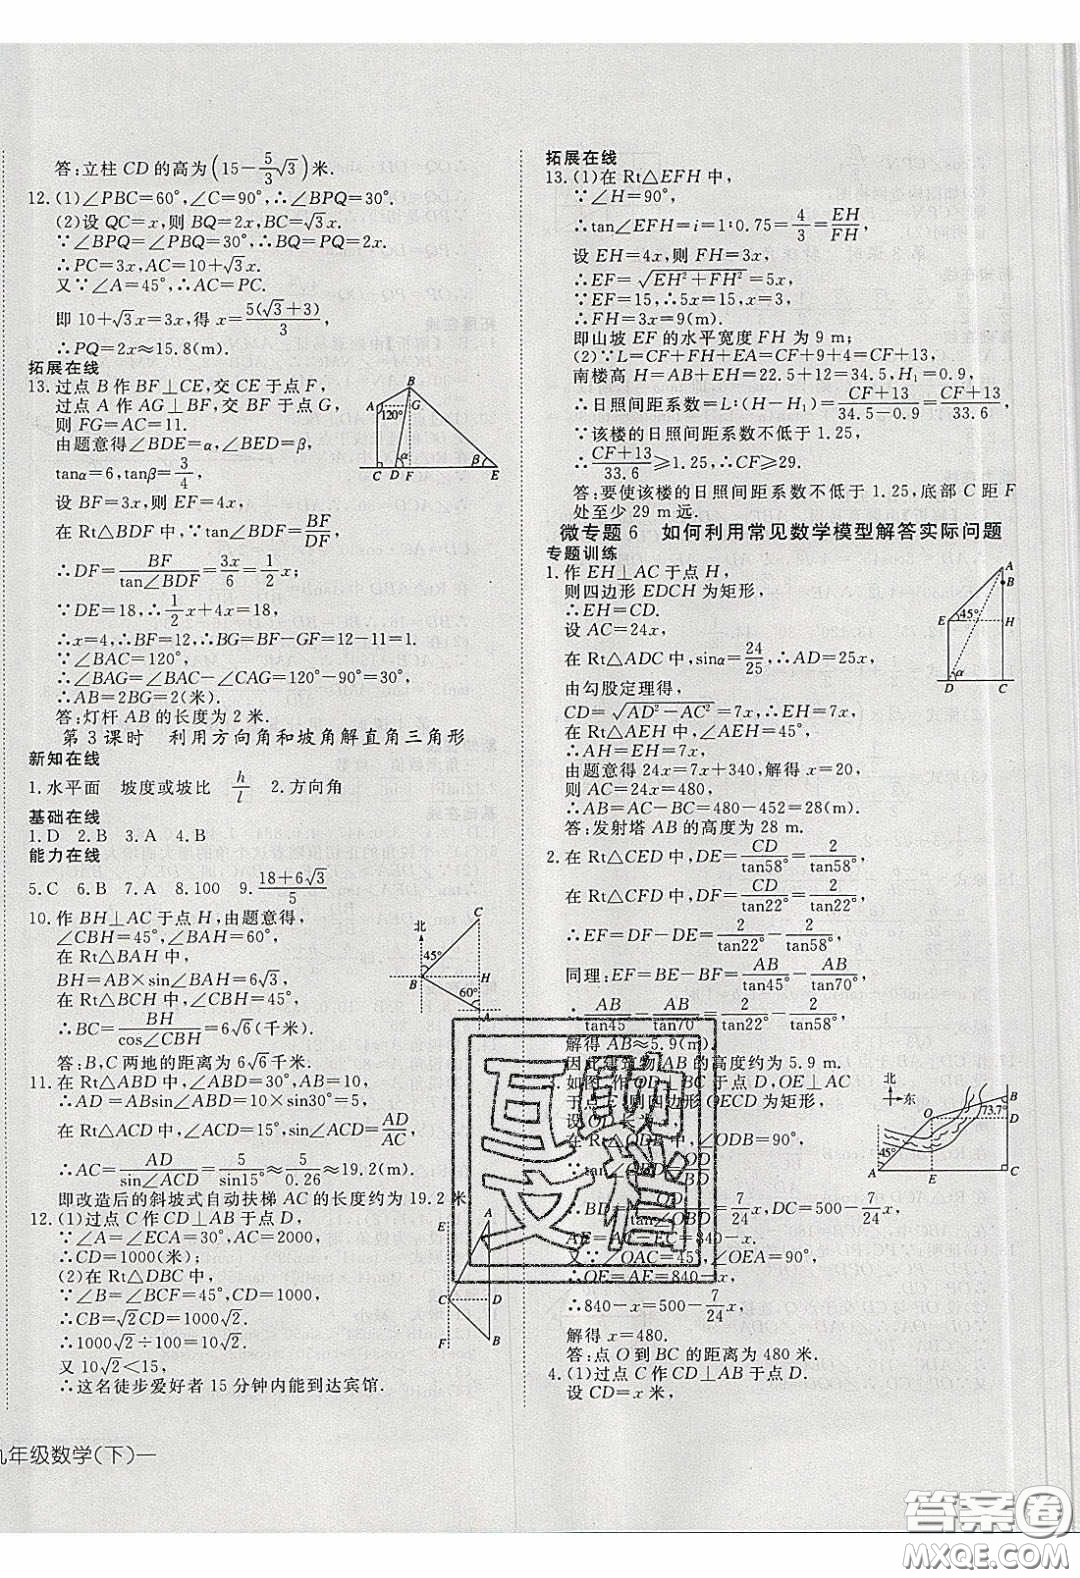 答:立柱 CD 的高为(15-5/3√3)米.
12.(1)∠PBC=60°,∠C=90°,∴∠BPQ=30°.
(2)设 QC=x,则 BQ=2x,BC=√3x.
∵∠BPQ=∠PBQ=30°,∴BQ=PQ=2x.
∴PC=3x,AC=10+√3x.
又∵∠A=45°,∴AC=PC.
即 10+√3x=3x,得 x=5(√3+3)/3,
∴PQ=2x≈15.8(m).
拓展在线
13.过点 B 作 BF⊥CE,交 CE 于点 F,
过点 A 作 AG⊥BF,交 BF 于点 G,
则 FG=AC=11.
由题意得∠BDE=α,∠BED=β,
tanα=6,tanβ=3/4,
设 BF=3x,则 EF=4x,
在 Rt△BDF 中,∵tan∠BDF=BF/DF,
∴DF=BF/tan∠BDF=3x/6=1/2x,
∵DE=18,∴1/2x+4x=18.
∴x=4,∴BF=12,∴BG=BF-GF=12-11=1.
∵∠BAC=120°,
∴∠BAG=∠BAC-∠CAG=120°-90°=30°.
∴AB=2BG=2(米).
答:灯杆 AB 的长度为 2 米.
B
A
120°
G
α
β
C D F E
第 3 课时 利用方向角和坡角解直角三角形
新知在线
1.水平面 坡度或坡比 h/l 2.方向角
基础在线
1.D 2.B 3.A 4.B
能力在线
5.C 6.B 7.A 8.100 9.(18+6√3)/5
10.作 BH⊥AC 于点 H,由题意得,
∠CBH=45°,∠BAH=60°,
在 Rt△BAH 中,
BH=AB×sin∠BAH=6√3,
在 Rt△BCH 中,∠CBH=45°,
∴BC=BH/cos∠CBH=6√6(千米).
答:B,C 两地的距离为 6√6千米.
北
C
45°
B
H
60°
A
11.在 Rt△ABD 中,∠ABD=30°,AB=10,
∴AD=ABsin∠ABD=10×sin30°=5.
在 Rt△ACD 中,∠ACD=15°,sin∠ACD=AD/AC,
∴AC=AD/sin∠ACD=5/sin15°≈5/0.26≈19.2(m).
即改造后的斜坡式自动扶梯 AC 的长度约为 19.2 米.
12.(1)过点 C 作 CD⊥AB 于点 D,
∵∠A=∠ECA=30°,AC=2000,
∴CD=1000(米);
(2)在 Rt△DBC 中,
∵∠B=∠BCF=45°,CD=1000,
∴CB=√2CD=1000√2.
∴1000√2÷100=10√2.
又 10√2<15,
∴这名徒步爱好者 15 分钟内能到达宾馆.
E
C
D
F B
九年级数学(下)—
拓展在线
13.(1)在 Rt△EFH 中,
∵∠H=90°,
∴tan∠EFH=i=1:0.75=4/3=EH/FH,
设 EH=4x,则 FH=3x,
∴EF=√(EH²+FH²)=5x,
∵EF=15,∴5x=15,x=3,
∴FH=3x=9(m).
即山坡 EF 的水平宽度 FH 为 9 m;
(2)∵L=CF+FH+EA=CF+9+4=CF+13,
南楼高 H=AB+EH=22.5+12=34.5,H₁=0.9,
∴日照间距系数=L:(H-H₁)=(CF+13)/(34.5-0.9)=(CF+13)/33.6,
∵该楼的日照间距系数不低于 1.25,
∴(CF+13)/33.6⩾1.25,∴CF⩾29.
答:要使该楼的日照间距系数不低于 1.25,底部 C 距 F
处至少 29 m远.
微专题 6 如何利用常见数学模型解答实际问题
专题训练
1.作 EH⊥AC 于点 H,
则四边形 EDCH 为矩形,
∴EH=CD.
设 AC=24x,
在 Rt△ADC 中,sinα=24/25,∴AD=25x,
由勾股定理得,
CD=√(AD²-AC²)=7x,∴EH=7x,
在 Rt△AEH 中,∠AEH=45°,
∴AH=EH=7x,
由题意得 24x=7x+340,解得 x=20,
则 AC=24x=480,
∴AB=AC-BC=480-452=28(m).
答:发射塔 AB 的高度为 28 m.
A
B
E
45°
H
α
D C
2.在 Rt△CED 中,DE=CD/tan58°=2/tan58°,
在 Rt△CFD 中,DF=CD/tan22°=2/tan22°,
∴EF=DF-DE=2/tan22°-2/tan58°,
同理:EF=BE-BF=AB/tan45°-AB/tan70°,
∴AB/tan45°-AB/tan70°=2/tan22°-2/tan58°,
解得 AB≈5.9(m).
因此建筑物 AB 的高度约为 5.9 m.
如图,作 OD⊥BC 于点 D,OE⊥AC
于点 E,则四边形 OECD 为矩形,
设 OD 长为
在 Rt△ODB 中,∠ODB=90°,
7/24x,DC=500-7/24x,
AE=AC-EC=840-x.
又∵∠OAC=45°,∠OEA=90°,
∴OE=AE=840-x,
∴840-x=500-7/24x,
解得 x=480.
答:点 O 到 BC 的距离为 480 米.
北
东
B
O
D
73.7°
45°
A E C
4.(1)过点 C 作 CD⊥AB 于点 D.
设 CD=x 米,
互助
文档
答案圈
MXQE.COM